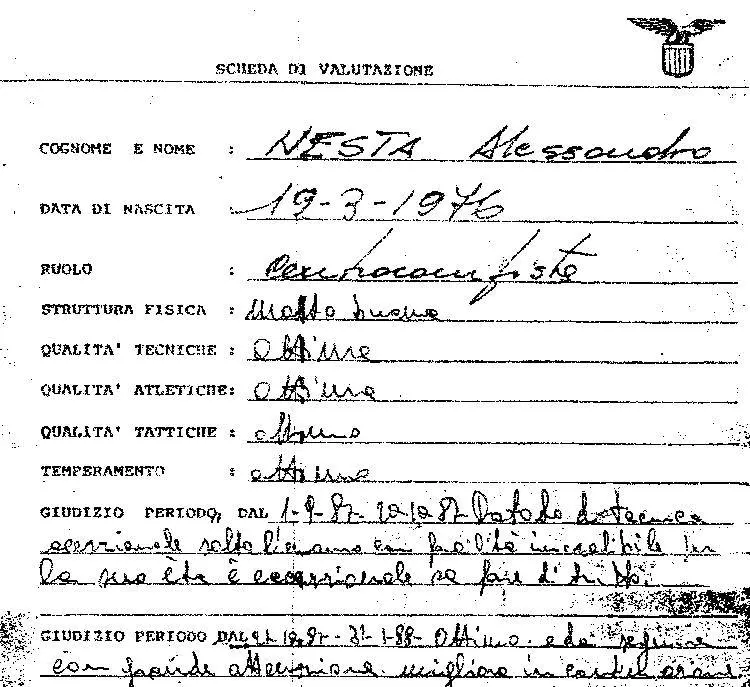 SCHEDA DI VALUTAZIONE
COGNOME E NOME : NESTA Alessandro
DATA DI NASCITA : 19-3-1976
RUOLO : Centrocampista
STRUTTURA FISICA : Molto buona
QUALITA' TECNICHE : Ottime
QUALITA' ATLETICHE: Ottime
QUALITA' TATTICHE : ottime
TEMPERAMENTO : ottimo
GIUDIZIO PERIODO, DAL 1-9-87- Dotato di tecnica
eccezionale salta l'uomo con facilità incredibile per
la sua età è eccezionale sa fare di tutto.
GIUDIZIO PERIODO DAL 31-1-88- Ottimo da seguire
con grande attenzione migliora in